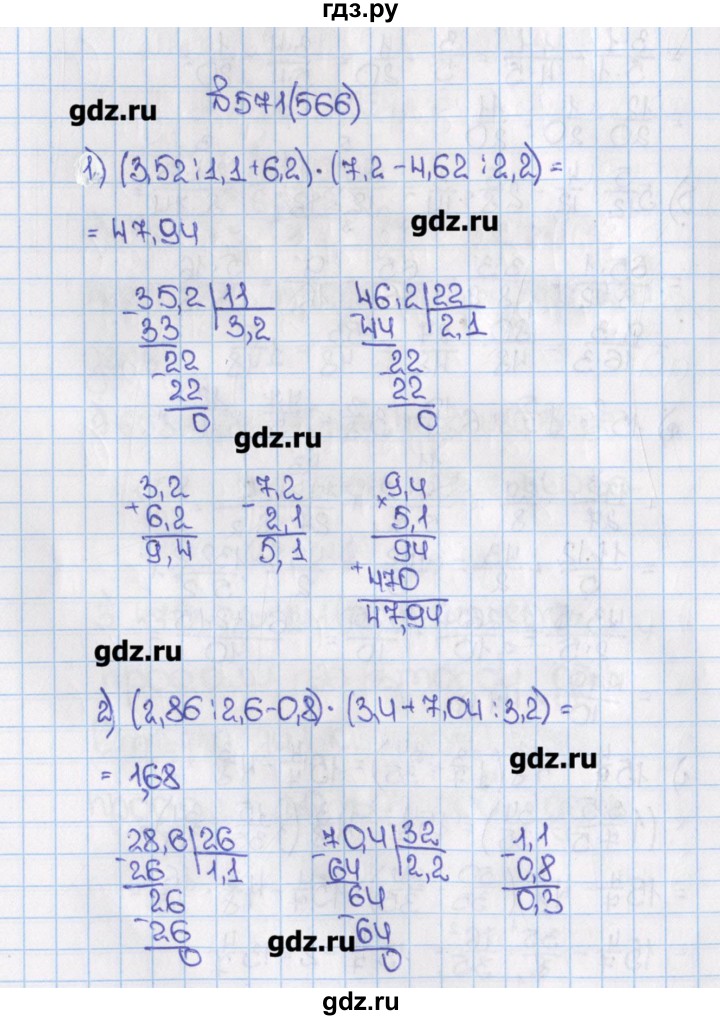 гдз.ру
№571(566)
gdz.ru
1) (3,52:1,1+6,2)·(7,2-4,62:2,2)=
gdz.ru
= 47,94
35,2 11
- 33 3,2
22
- 22
0
46,2 22
- 44 2,1
22
22
0
gdz.ru
3,2
+ 6,2
9,4
7,2
- 2,1
5,1
9,4
× 5,1
94
+ 470
47,94
gdz.ru
2) (2,86:2,6-0,8)·(3,4+7,04:3,2)=
gdz.ru
= 1,68
28,6 26
- 26 1,1
26
- 26
0
70,4 32
- 64 2,2
64
- 64
0
1,1
- 0,8
0,3
gdz.ru
gdz.ru